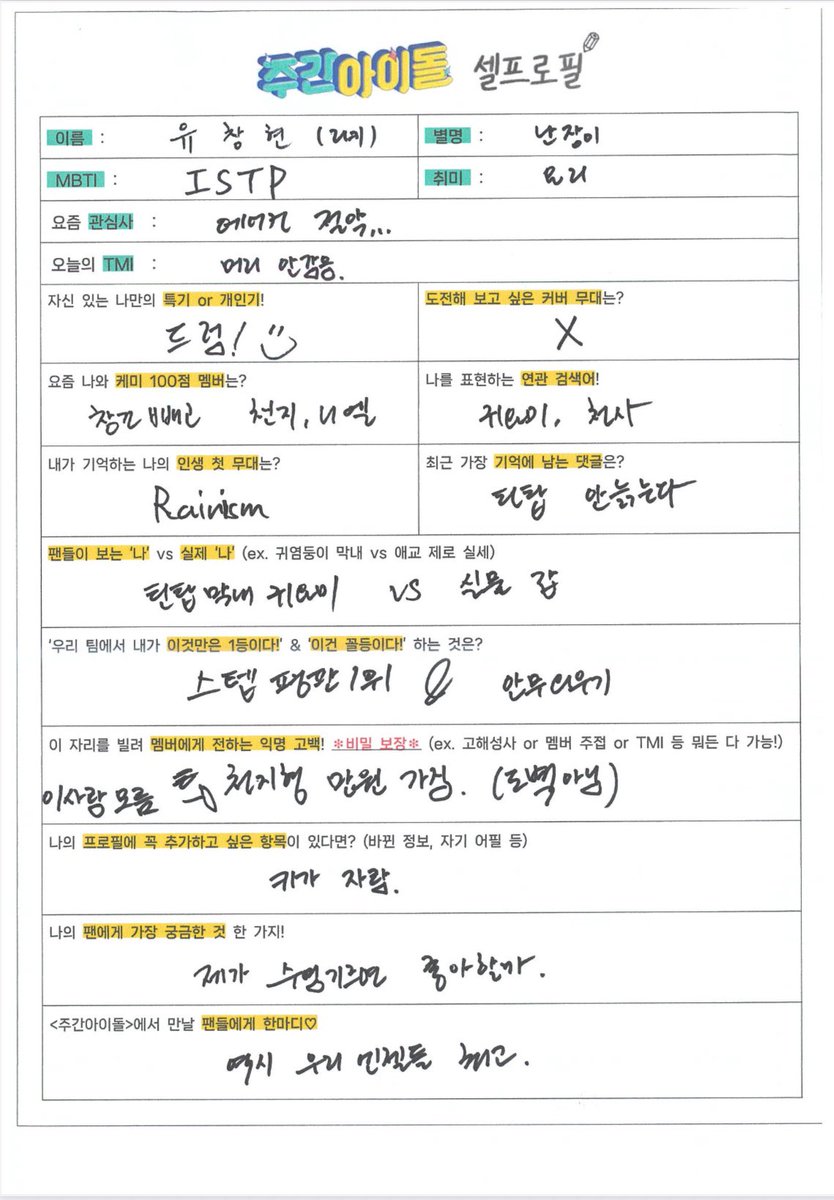 주간아이돌 셀프로필
이름 : 유창현 (리키)
별명 : 난장이
MBTI : ISTP
취미 : 요리
요즘 관심사 : 에어컨 절약...
오늘의 TMI : 머리 안감음.
자신 있는 나만의 특기 or 개인기!
드럼!
도전해 보고 싶은 커버 무대는?
X
요즘 나와 케미 100점 멤버는?
창조 빼고 천지, 니엘
나를 표현하는 연관 검색어!
귀요미, 천사
내가 기억하는 나의 인생 첫 무대는?
Rainism
최근 가장 기억에 남는 댓글은?
틴탑 안늙는다
팬들이 보는 '나' vs 실제 '나' (ex. 귀염둥이 막내 vs 애교 제로 실세)
틴탑 막내 귀요미 vs 실물 갑
'우리 팀에서 내가 이것만은 1등이다!' & '이건 꼴등이다!' 하는 것은?
스텝 평판 1위 & 안무 외우기
이 자리를 빌려 멤버에게 전하는 익명 고백! *비밀 보장* (ex. 고해성사 or 멤버 주접 or TMI 등 뭐든 다 가능!)
이사람 모름 천지형 만원 가짐. (도벽아님)
나의 프로필에 꼭 추가하고 싶은 항목이 있다면? (바뀐 정보, 자기 어필 등)
키가 자람.
나의 팬에게 가장 궁금한 것 한 가지!
제가 수염기르면 좋아할까.
<주간아이돌>에서 만날 팬들에게 한마디♡
역시 우리 엔젤들 최고.